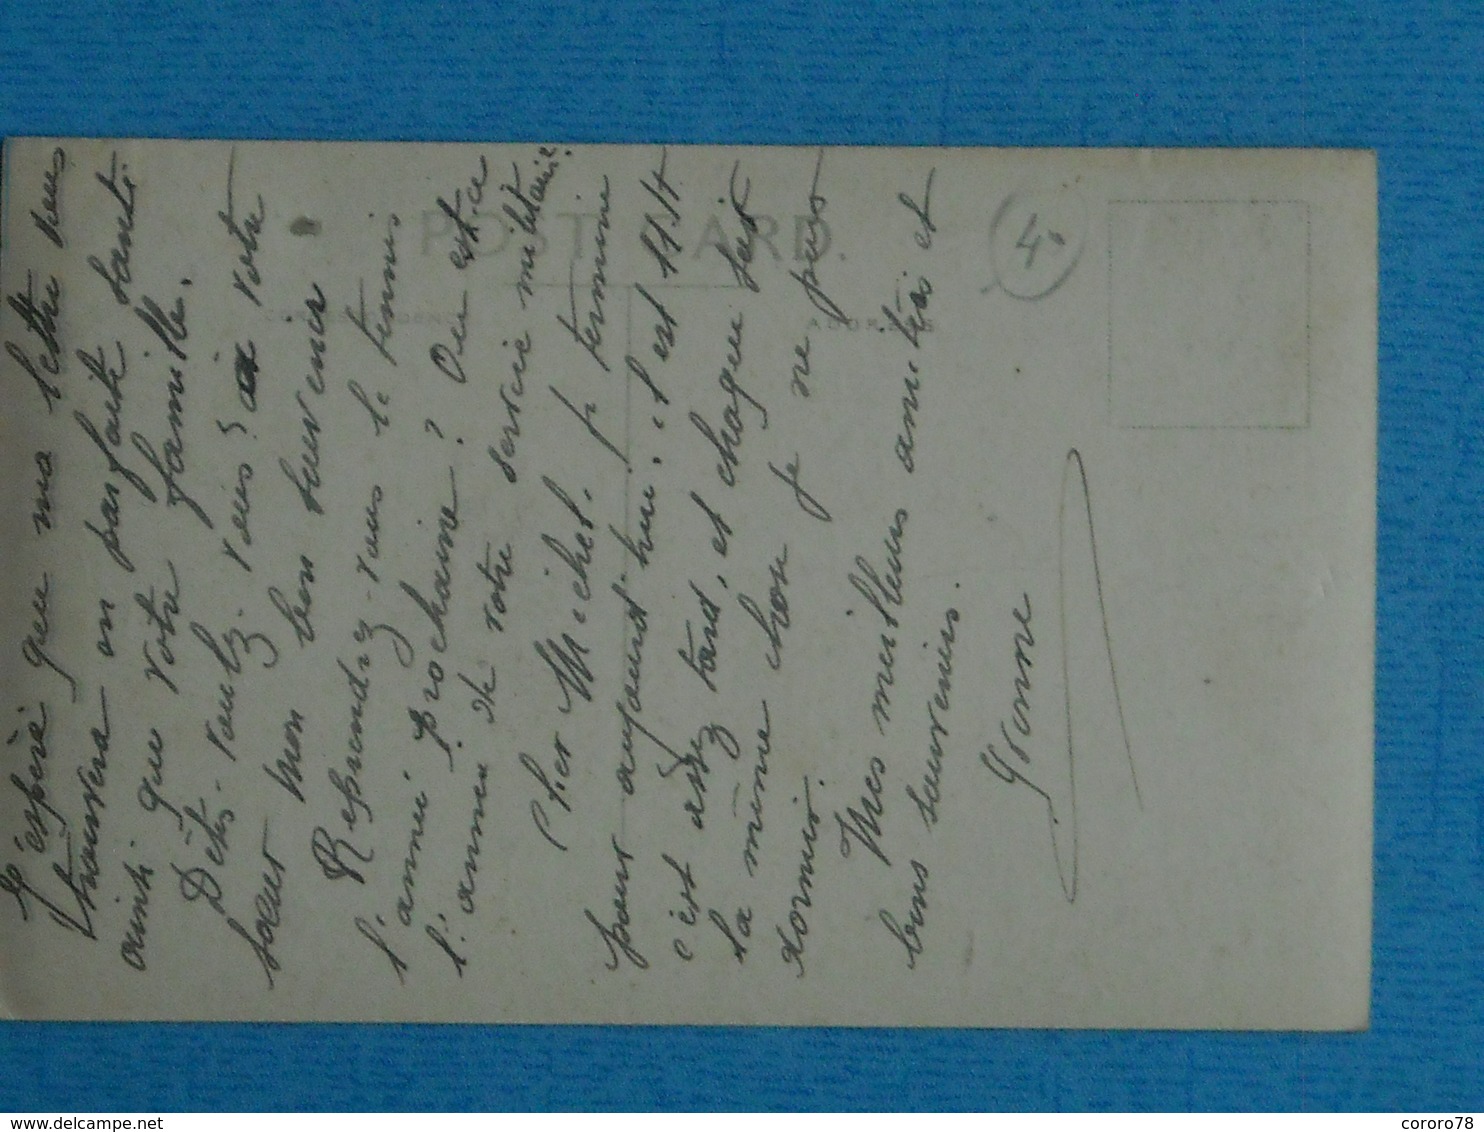 J'espère que ma lettre vous
trouvera en parfaite santé
ainsi que votre famille.
Dites-voulez-vous? à votre
sœur mon bon souvenir
Reprendrez-vous le tennis
l'année prochaine? Ou est-ce
l'année de votre service militaire?
Cher Michel. Je termine
pour aujourd'hui. il est 11h
c'est assez tard, et chaque soir
la même chose je ne puis
dormir.
Mes meilleurs amitiés et
bons souvenirs.
Yvonne
4.
POST CARD.
CORRESPONDENCE
ADDRESS
cororo78